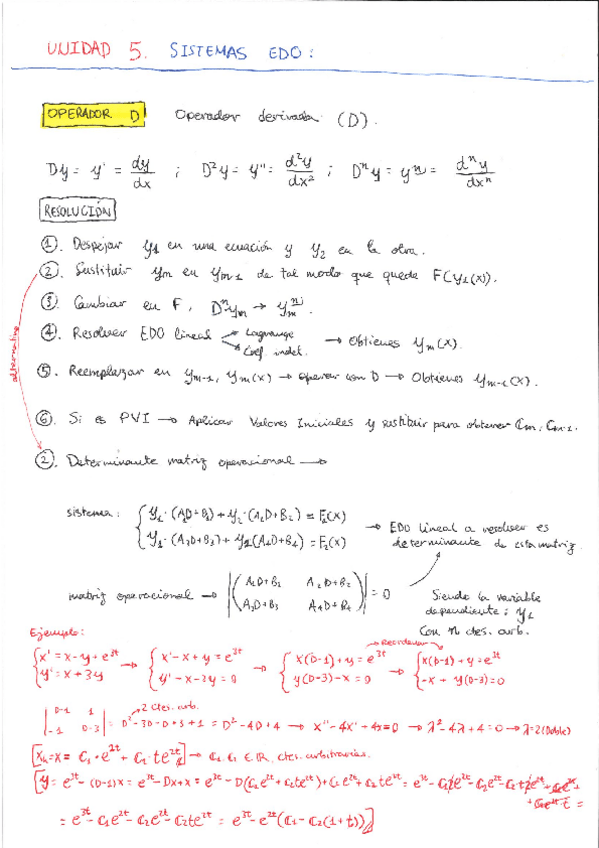 UNIDAD 5. SISTEMAS EDO:
OPERADOR D Operador derivada (D).
Dy = y' = dy/dx ; D²y = y'' = d²y/dx² ; Dⁿy = yⁿ⁾ = dⁿy/dxⁿ
RESOLUCIÓN
①. Despejar y₁ en una ecuación y y₂ en la otra.
②. Sustituir yₘ en yₘ₋₁ de tal modo que quede F(y₁(x)).
③. Cambiar en F, Dⁿyₘ → yₘⁿ⁾.
④. Resolver EDO lineal Lagrange Coef. indet. → Obtienes yₘ(x).
alternativa
⑤. Reemplazar en yₘ₋₁, yₘ(x) → operar con D → Obtienes yₘ₋₁(x).
⑥. Si es PVI → Aplicar Valores Iniciales y sustituir para obtener Cₘ, Cₘ₋₁.
②. Determinante matriz operacional →
sistema: { y₁·(A₁D+B₁)+y₂·(A₂D+B₂) = F₁(x)
y₁·(A₃D+B₃)+y₂(A₄D+B₄) = F₂(x)
→ EDO lineal a resolver es
determinante de esta matriz.
matriz operacional → |(A₁D+B₁ A₂D+B₂
A₃D+B₃ A₄D+B₄)| = 0
Siendo la variable
dependiente: y₁
Con n ctes. arb.
Ejemplo:
Reordenar
{ x' = x-y+e³ᵗ → { x'-x+y = e³ᵗ → { x(D-1)+y = e³ᵗ → { x(D-1)+y = e³ᵗ
y' = x+3y y'-x-3y = 0 y(D-3)-x = 0 -x + y(D-3) = 0
2 ctes. arb.
| D-1 1
-1 D-3 | = D²-3D-D+3+1 = D²-4D+4 → x''-4x'+4x=0 → λ²-4λ+4=0 → λ=2 (Doble)
[xₕ=x= C₁·e²ᵗ + C₂·te²ᵗ] → C₁, C₂ ∈ ℝ, ctes. arbitrarias.
[y = e³ᵗ-(D-1)x = e³ᵗ-Dx+x = e³ᵗ-D(C₁e²ᵗ+C₂te²ᵗ)+C₁e²ᵗ+C₂te²ᵗ = e³ᵗ
= e³ᵗ-C₁e²ᵗ-C₂e²ᵗ-C₂te²ᵗ = e³ᵗ-e²ᵗ(C₁-C₂(1+t))]